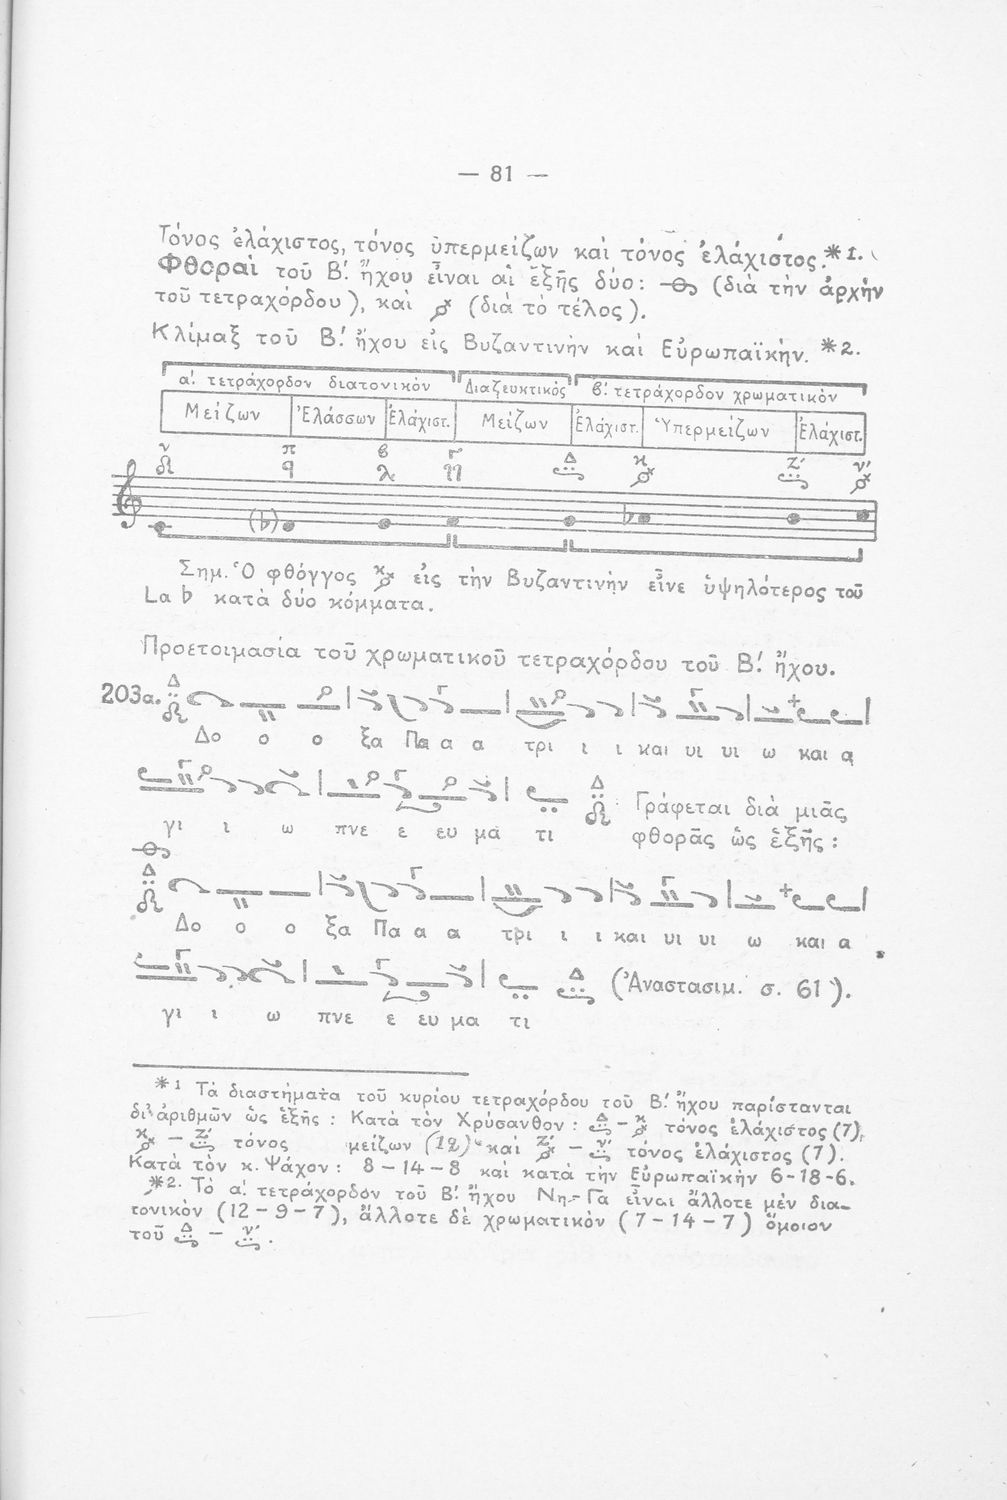 — 81 —
Τόνος ἐλάχιστος, τόνος ὑπερμείζων καὶ τόνος ἐλάχιστος.*1.
Φθοραὶ τοῦ Β΄. ἤχου εἶναι αἱ ἑξῆς δύο: (διὰ τὴν ἀρχὴν
τοῦ τετραχόρδου), καὶ (διὰ τὸ τέλος).
Κλίμαξ τοῦ Β΄. ἤχου εἰς Βυζαντινὴν καὶ Εὐρωπαϊκήν. *2.
α΄. τετράχορδον διατονικόν Διαζευκτικός β΄. τετράχορδον χρωματικόν
Μείζων Ἐλάσσων Ἐλάχιστ. Μείζων Ἐλάχιστ. Ὑπερμείζων Ἐλάχιστ.
ν π β Γ Δ κ Ζ΄ ν΄
Σημ. Ὁ φθόγγος κ εἰς τὴν Βυζαντινὴν εἶνε ὑψηλότερος τοῦ
La b κατὰ δύο κόμματα.
Προετοιμασία τοῦ χρωματικοῦ τετραχόρδου τοῦ Β΄. ἤχου.
203α.
Δο ο ο ξα Πα α α τρι ι ι και υι υι ω και α
γι ι ω πνε ε ευ μα τι
Γράφεται διὰ μιᾶς
φθορᾶς ὡς ἑξῆς :
Δο ο ο ξα Πα α α τρι ι ι και υι υι ω και α
(Ἀναστασιμ. σ. 61).
γι ι ω πνε ε ευ μα τι
*1 Τὰ διαστήματα τοῦ κυρίου τετραχόρδου τοῦ Β΄. ἤχου παρίστανται
δι᾿ ἀριθμῶν ὡς ἑξῆς : Κατὰ τὸν Χρύσανθον : Δ – κ τόνος ἐλάχιστος (7),
κ – Ζ΄ τόνος μείζων (12) καὶ Ζ΄ – ν΄ τόνος ἐλάχιστος (7).
Κατὰ τὸν κ. Ψάχον : 8 – 14 – 8 καὶ κατὰ τὴν Εὐρωπαϊκὴν 6-18-6.
*2. Τὸ α΄. τετράχορδον τοῦ Β΄. ἤχου Νη – Γα εἶναι ἄλλοτε μὲν δια-
τονικὸν (12 – 9 – 7), ἄλλοτε δὲ χρωματικὸν (7 – 14 – 7) ὅμοιον
τοῦ Δ – ν΄.